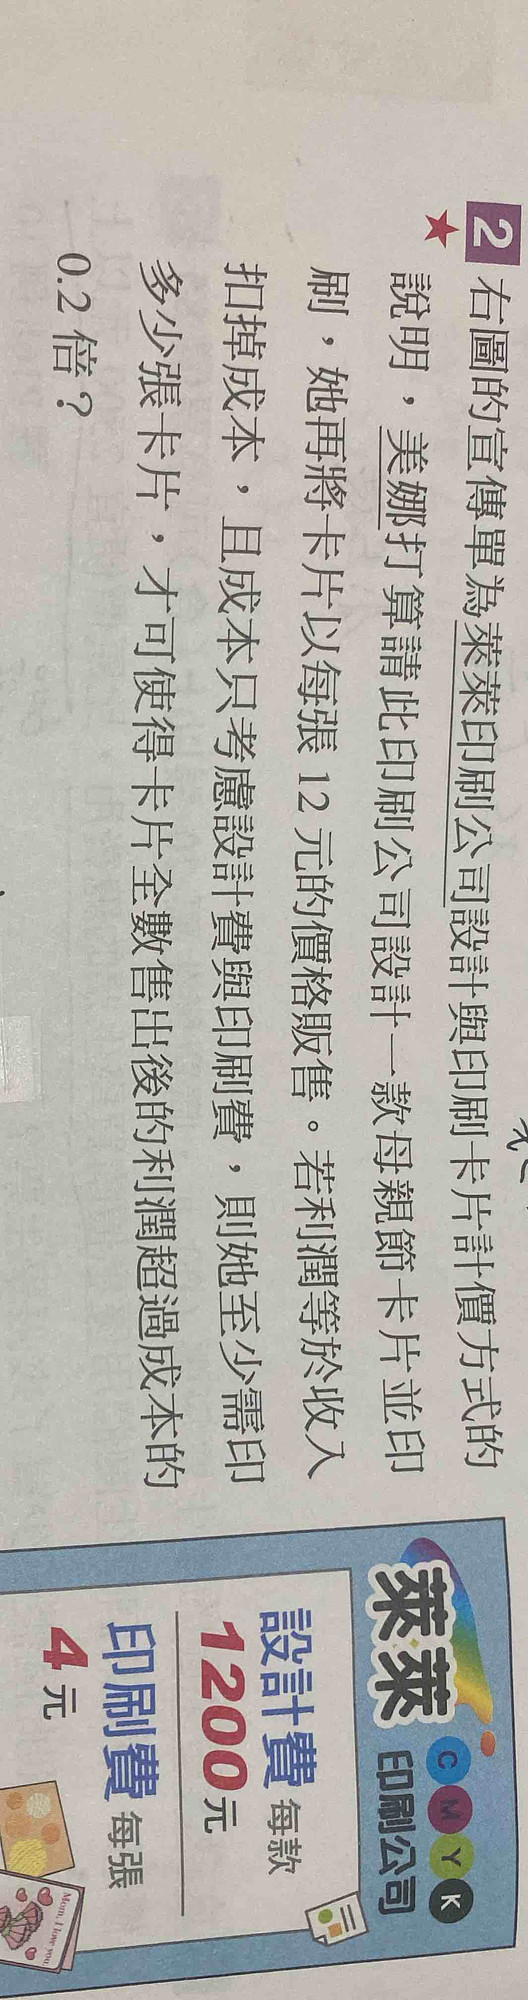 2 右圖的宣傳單為萊萊印刷公司設計與印刷卡片計價方式的
說明，美娜打算請此印刷公司設計一款母親節卡片並印
刷，她再將卡片以每張 12 元的價格販售。若利潤等於收入
扣掉成本，且成本只考慮設計費與印刷費，則她至少需印
多少張卡片，才可使得卡片全數售出後的利潤超過成本的
0.2 倍？
萊萊 CMYK 印刷公司
設計費 每款
1200元
印刷費 每張
4元
Mom, I love you.